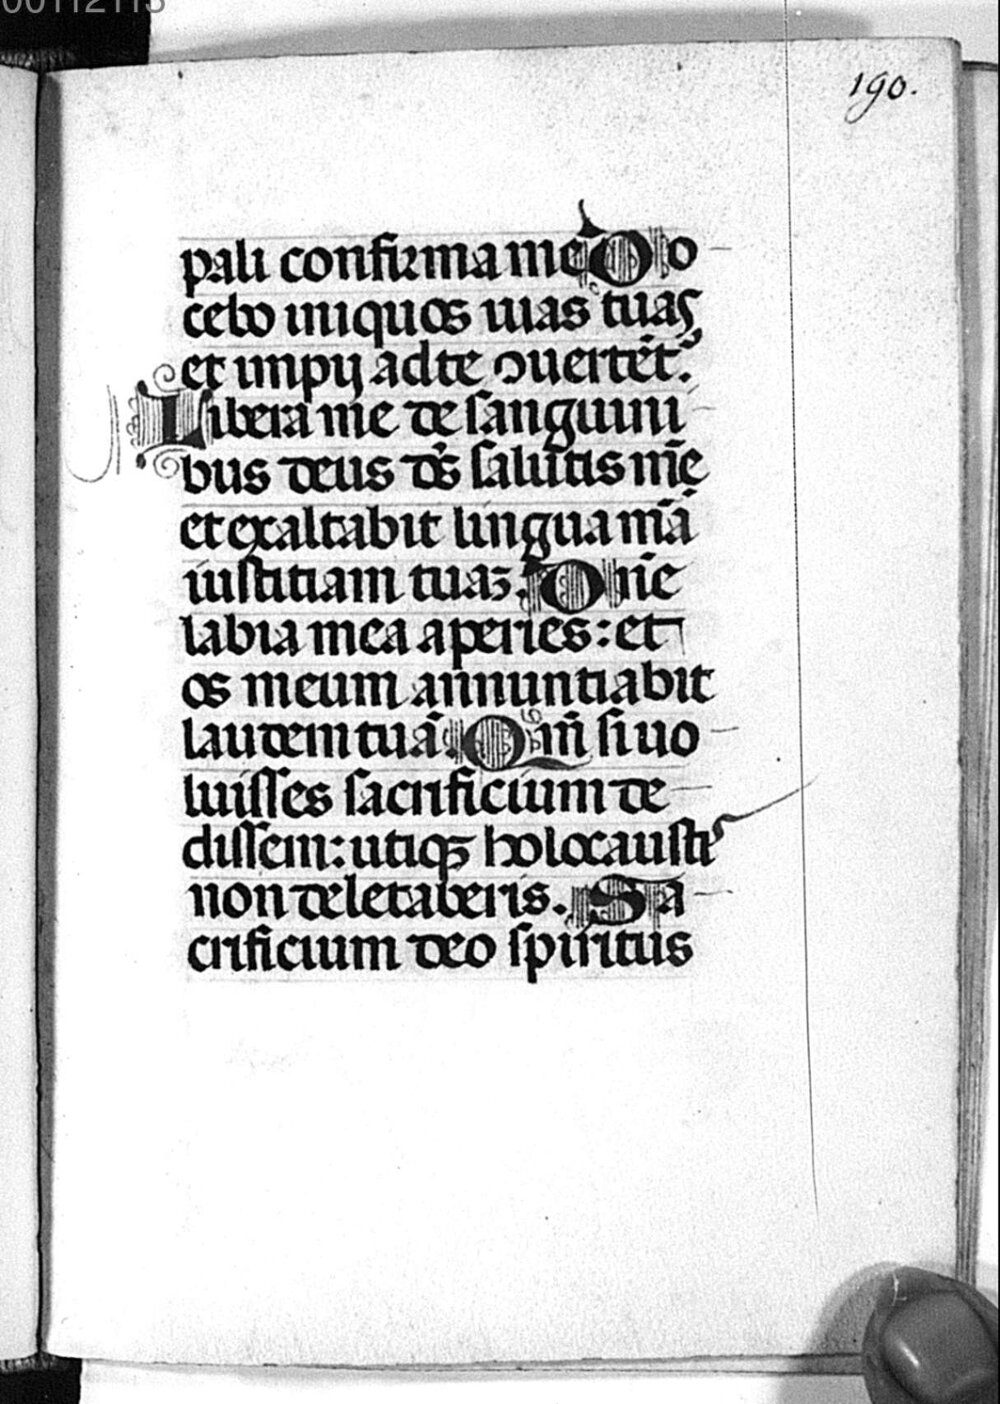 00112113
190.
pali confirma me Do
cebo iniquos uias tuas
et impij ad te ↄuertēt᷒.
Libera me de sanguini
bus deus ds̄ salutis mē
et exaltabit lingua mā
iustitiam tuaz. Dn̄e
labia mea aperies: et
os meum annuntiabit
laudem tuā. Qm̄ si uo
luisses sacrificium de
dissem: utiqꝫ holocausti᷒
non deletaberis. Sa
crificium deo spiritus